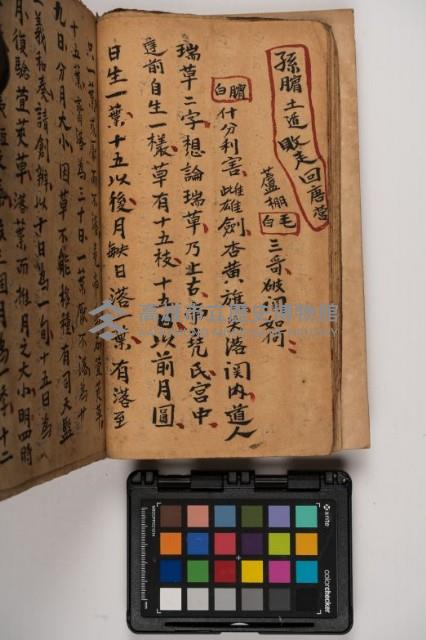 孫臏土遁敗走回唐營
蘆棚
毛白 三哥破関如何
臏白 什分利害 雌雄劍杏黃旗失落関內道人
瑞草二字想論瑞草乃上古 氏宮中
達前自生一樣草有十五枝十五日以前月圓
日生一葉十五以後月缺日落一葉有落至
九日分月大小因草不能移種有司天監
一義和奏請創辦以十日為一旬十五日為
月復驗蓂莢草落葉而推月之大小明四時
高雄市立歷史博物館
x-rite
colorchecker